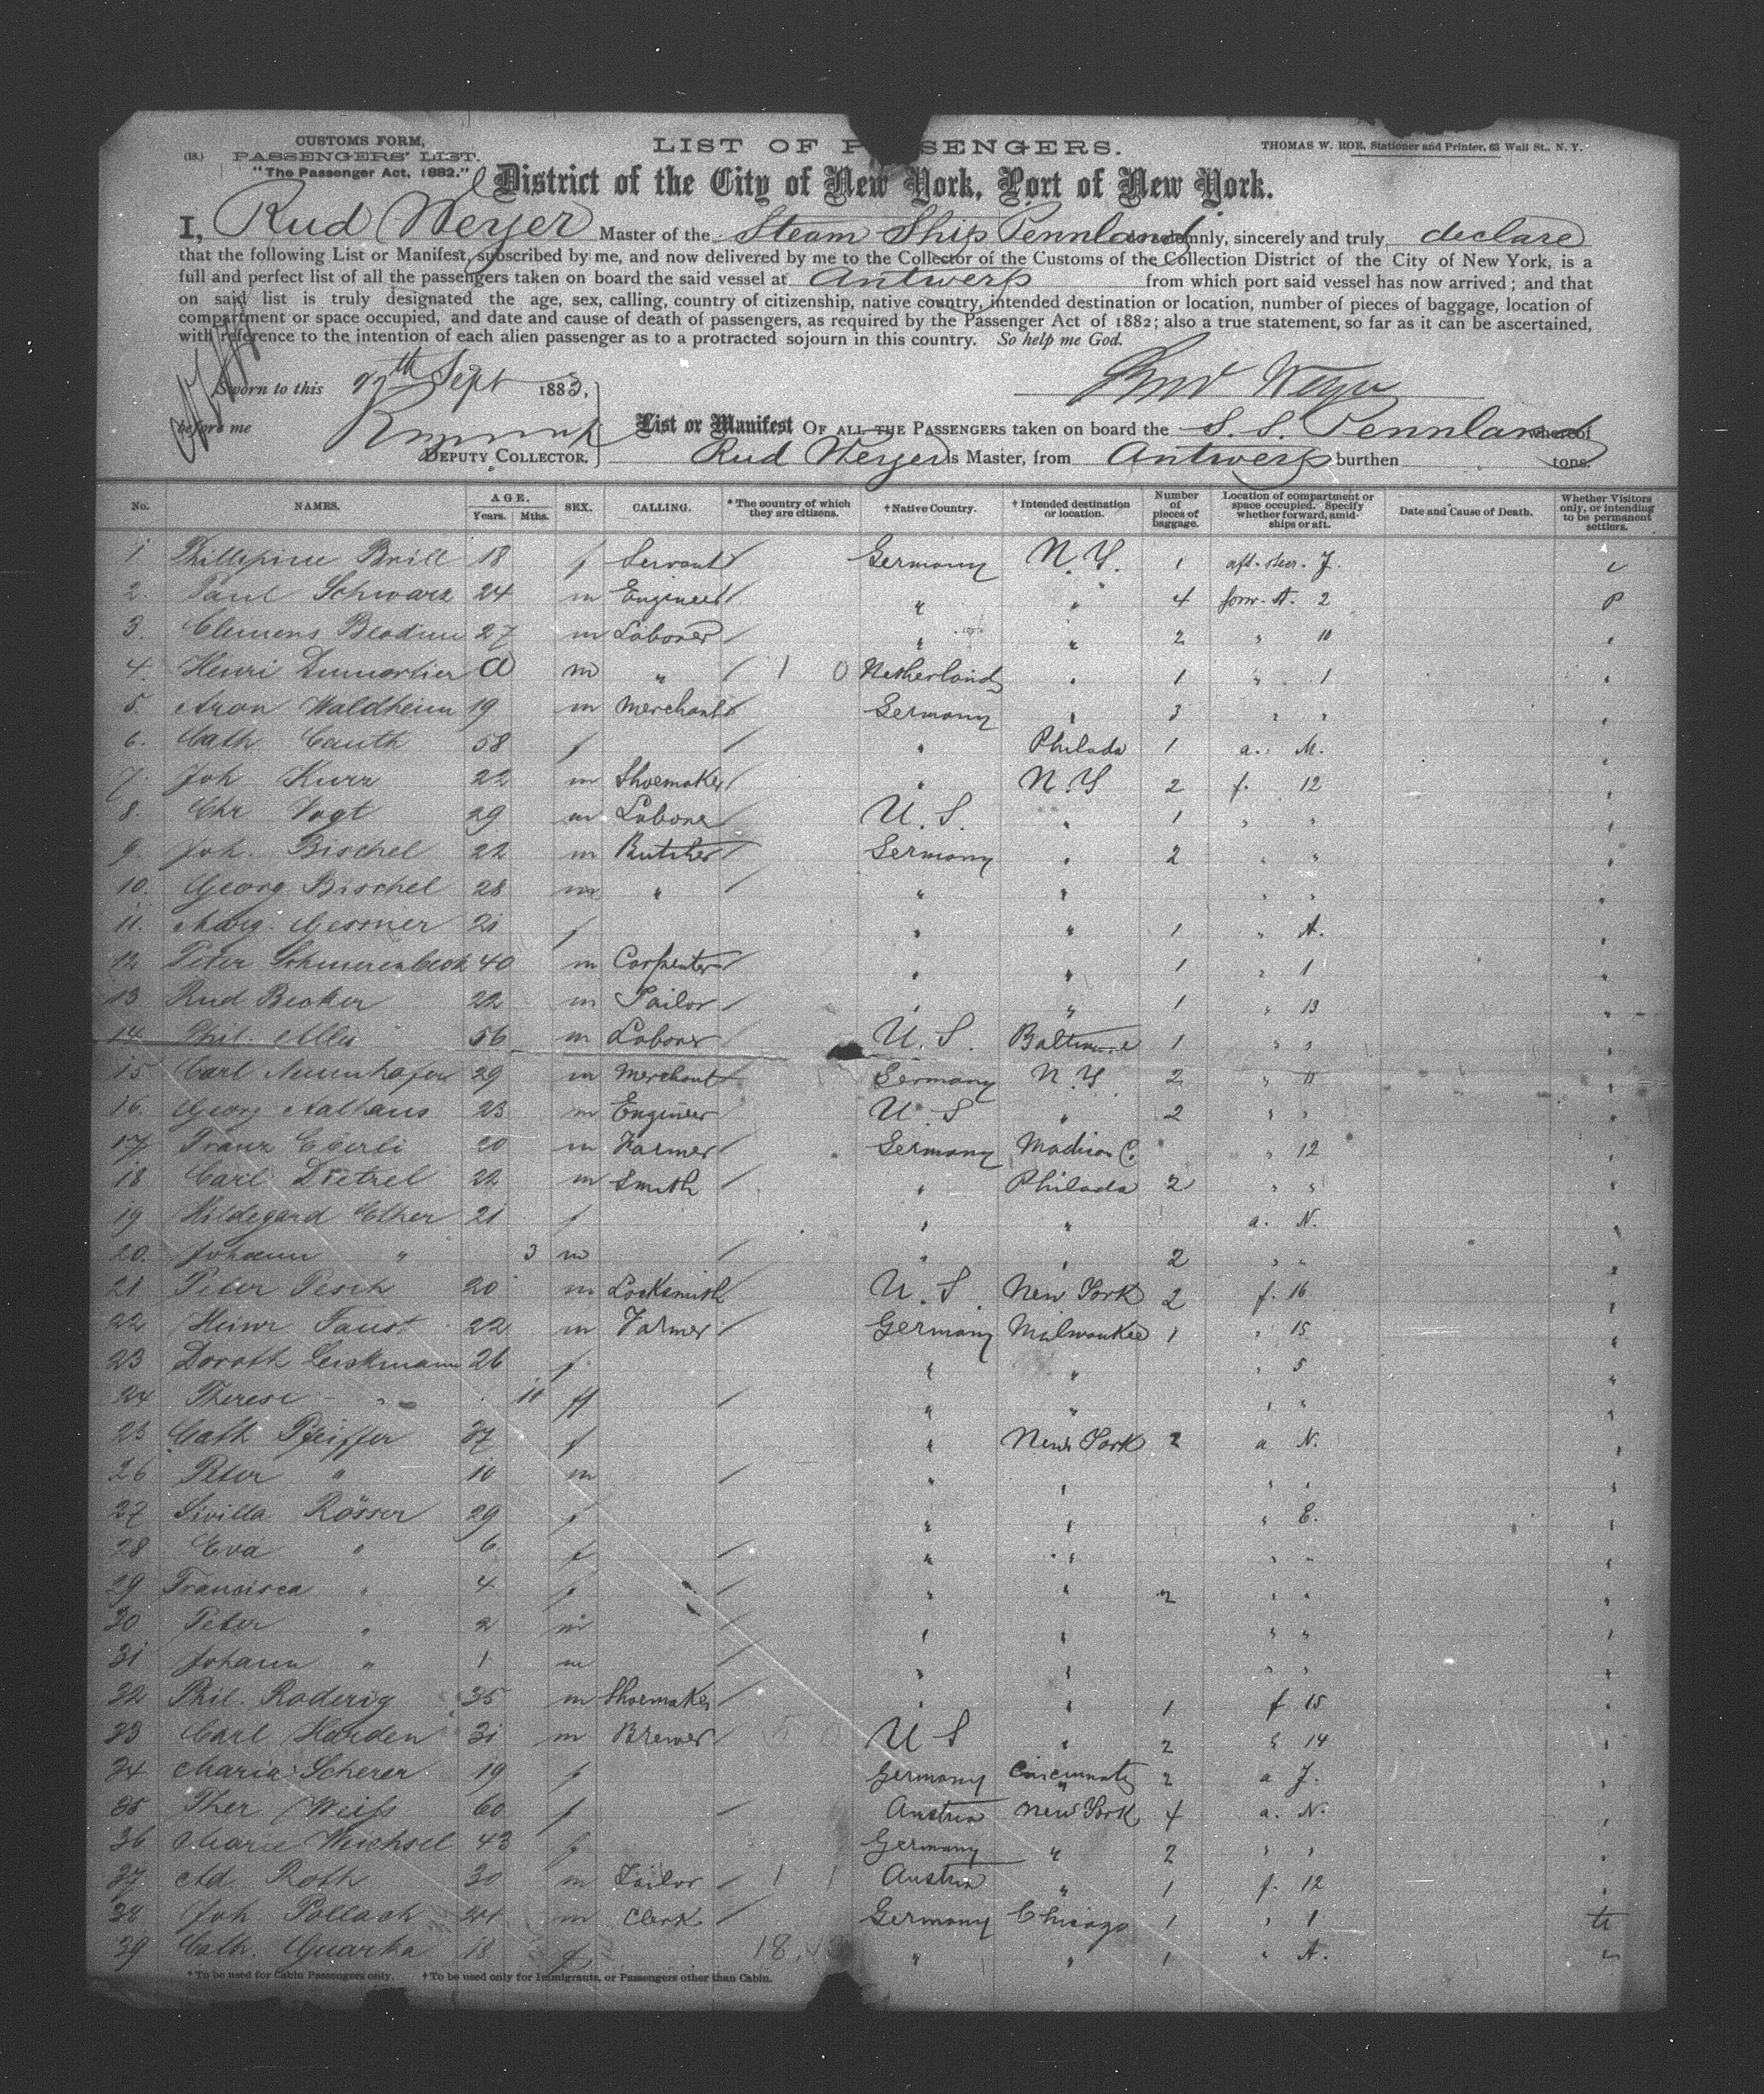 CUSTOMS FORM,
(18.) PASSENGERS' LIST.
"The Passenger Act, 1882."
LIST OF PASSENGERS.
THOMAS W. ROE, Stationer and Printer, 63 Wall St., N. Y.
District of the City of New York, Port of New York.
I, Rud Weyer Master of the Steam Ship Pennland do solemnly, sincerely and truly declare
that the following List or Manifest, subscribed by me, and now delivered by me to the Collector of the Customs of the Collection District of the City of New York, is a
full and perfect list of all the passengers taken on board the said vessel at Antwerp from which port said vessel has now arrived; and that
on said list is truly designated the age, sex, calling, country of citizenship, native country, intended destination or location, number of pieces of baggage, location of
compartment or space occupied, and date and cause of death of passengers, as required by the Passenger Act of 1882; also a true statement, so far as it can be ascertained,
with reference to the intention of each alien passenger as to a protracted sojourn in this country. So help me God.
Sworn to this th Sept 1883, Rud Weyer
before me
DEPUTY COLLECTOR.
List or Manifest OF ALL THE PASSENGERS taken on board the S. S. Pennland whereof
Rud Weyer is Master, from Antwerp burthen tons.
No. NAMES. AGE. Years. Mths. SEX. CALLING. * The country of which they are citizens. † Native Country. † Intended destination or location. Number of pieces of baggage. Location of compartment or space occupied. Specify whether forward, amidships or aft. Date and Cause of Death. Whether Visitors only, or intending to be permanent settlers.
1 Phillipine Brill 18 f Servant / Germany N.Y. 1 aft. steer. J.
2. Paul Schwarz 24 m Engineer / " " 4 forw. A. 2 P
3. Clemens 27 m Laborer / " " 2 " 10 "
4. Henri Dumortier a m " / 1 0 Netherlands " 1 " 1 "
5. Aron Waldheim 19 m Merchant / Germany " 3 " " "
6. Cath Cauth 58 f / " Philada 1 a. M. "
7. Joh Kurz 22 m Shoemaker / " N.Y 2 f. 12 "
8. Chr Vogt 29 m Laborer / U.S. " 1 " " "
9. Joh. Bischel 22 m Butcher / Germany " 2 " " "
10. Georg Bischel 28 m " / " " " " "
11. Marg. Gessner 21 f " " 1 " A. "
12 Peter 40 m Carpenter / " " 1 " 1 "
13 Rud Becker 22 m Tailor / " " 1 " 13 "
14. Phil. 56 m Laborer / U.S. Baltimore 1 " " "
15 Carl 29 m Merchant / Germany N.Y 2 " 11 "
16. Georg Aalhaus 23 m Engineer / U.S " 2 " " "
17 Franz Eberli 20 m Farmer / Germany Madison C. " 12 "
18 Carl Dietzel 22 m Smith / " Philada 2 " " "
19 Hildegard Elher 21 f " " a. N. "
20. Johann " 3 m / " " 2 " " "
21 Peter Pesch 20 m Locksmith / U.S. New York 2 f. 16 "
22 Heinr Faust 22 m Farmer / Germany Milwaukee 1 " 15 "
23 Doroth 26 f " " " 5 "
24 Therese " 11 f / " " " " "
25 Cath Pfeiffer 37 f " New York 2 a N. "
26 Peter " 10 m / " " " " "
27 Sivilla Rösser 29 f " " " E. "
28 Eva " 6 f / " " " " "
29 Francisca " 4 f / " " 2 " " "
30 Peter " 2 m / " " " " "
31 Johann " 1 m / " " " " "
32 Phil. Roderig 35 m Shoemaker / " " 1 f 15 "
33 Carl Harden 31 m Brewer / U S " 2 " 14 "
34 Maria Scherer 19 f Germany Cincinnati 2 a J. "
35 Ther Weiss 60 f / Austria New York 4 a. N. "
36 Marie Weichsel 43 f Germany " 2 " " "
37 Ad. Roth 30 m Tailor / 1 1 Austria " 1 f. 12 "
38 Joh Pollach m Clerk / Germany Chicago 1 " 1
39 Cath. Guarka 18 f " " 1 " A. "
* To be used for Cabin Passengers only. † To be used only for Immigrants, or Passengers other than Cabin.